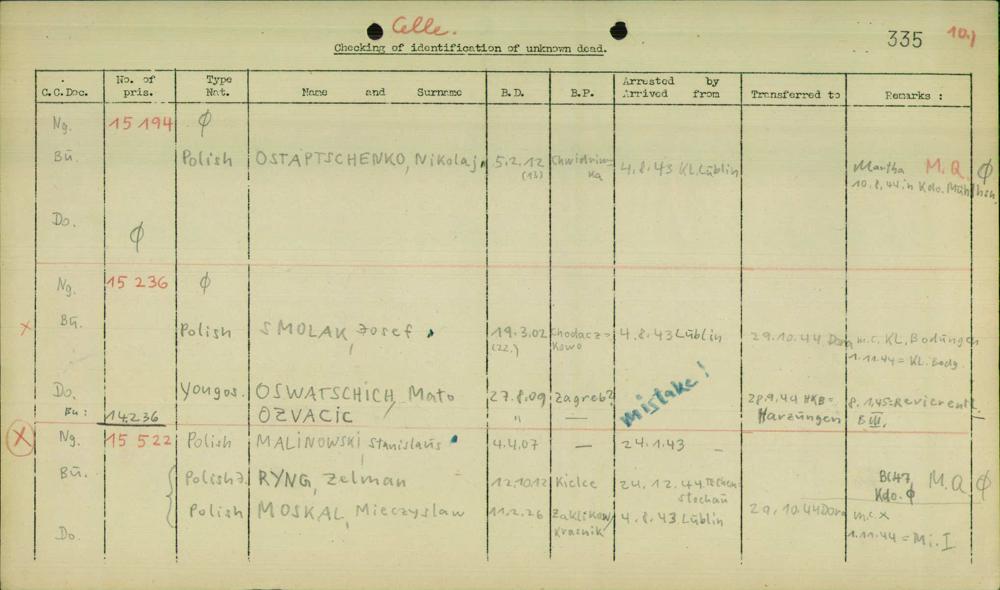 Celle.
335 10.)
Checking of identification of unknown dead.
C.C.Doc. No. of pris. Type Nat. Name and Surname B.D. B.P. Arrested by Arrived from Transferred to Remarks :
Ng. 15 194 ϕ
Bu. Polish OSTAPTSCHENKO, Nikolaj 5.2.12 (13) 4.8.43 KL. Lublin Martha M.Q. ϕ
10.8.44 in Kdo.
Do. ϕ
Ng. 15 236 ϕ
x Bu. Polish SMOLAK, Josef 19.3.02 (22.) Chodacz=kowo 4.8.43 Lublin 29.10.44 Dora m.c. KL. Bodungen
1.11.44 = KL. Bodg.
Do. Yougos. OSWATSCHICH, Mato 27.8.09 Zagreb? mistake! 28.9.44 HKB= Harzungen 8.1.45=Revierentl.
Bu: 14236 OZVACIC " — B III.
x Ng. 15 522 Polish MALINOWSKI, Stanislaus 4.4.07 — 24.1.43 —
Bu. Polish J. RYNG, Zelman 12.10.12 Kielce 24.12.44 Tschen-stochau BU47 Kdo. ϕ M.Q ϕ
Polish MOSKAL, Mieczyslaw 11.2.26 Zaklikow, Krasnik 4.8.43 Lublin 29.10.44 Dora m.c. x
Do. 1.11.44 = Mi. I